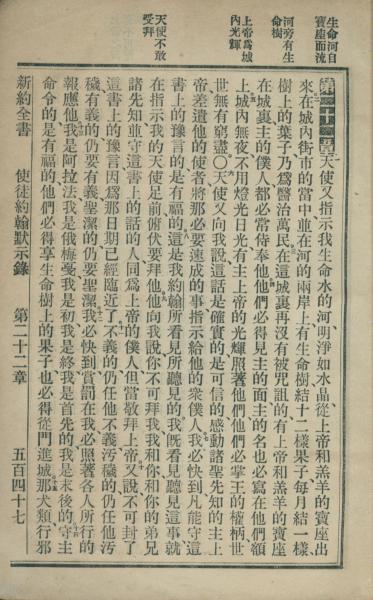 生命河自
寶座而流
河旁有生
命樹
上帝爲城
內光輝
天使不敢
受拜
第二十二章天使又指示我生命水的河明淨如水晶從上帝和羔羊的寶座出
來在城內街市的當中並在河的兩岸上有生命樹結十二樣果子每月結一樣
樹上的葉子乃爲醫治萬民在這城裏再沒有被咒詛的有上帝和羔羊的寶座
在城裏主的僕人都必當侍奉他他們必得見主的面主的名也必寫在他們額
上城內無夜不用燈光日光有主上帝的光輝照著他們他們必掌王的權柄世
世無有窮盡〇天使又向我說這話是確實的是可信的感動諸聖先知的主上
帝差遣他的使者將那必要速成的事指示給他的衆僕人我必快到凡能守這
書上的豫言的是有福的這是我約翰所看見所聽見的我旣看見聽見這事就
在指示我的天使足前俯伏要拜他他向我說你不可拜我我和你和你的弟兄
諸先知並守這書上的話的人同爲上帝的僕人但當敬拜上帝又說不可封了
這書上的豫言因爲那日期已經臨近了不義的仍任他不義汚穢的仍任他汚
穢有義的仍要有義聖潔的仍要聖潔我必快到賞罰在我必照著各人所行的
報應他我是阿拉法我是俄梅戞我是初我是終我是首先的我是末後的守主
命令的是有福的他們必得享生命樹上的果子也必得從門進城那犬類行邪
新約全書 使徒約翰默示錄 第二十二章 五百四十七